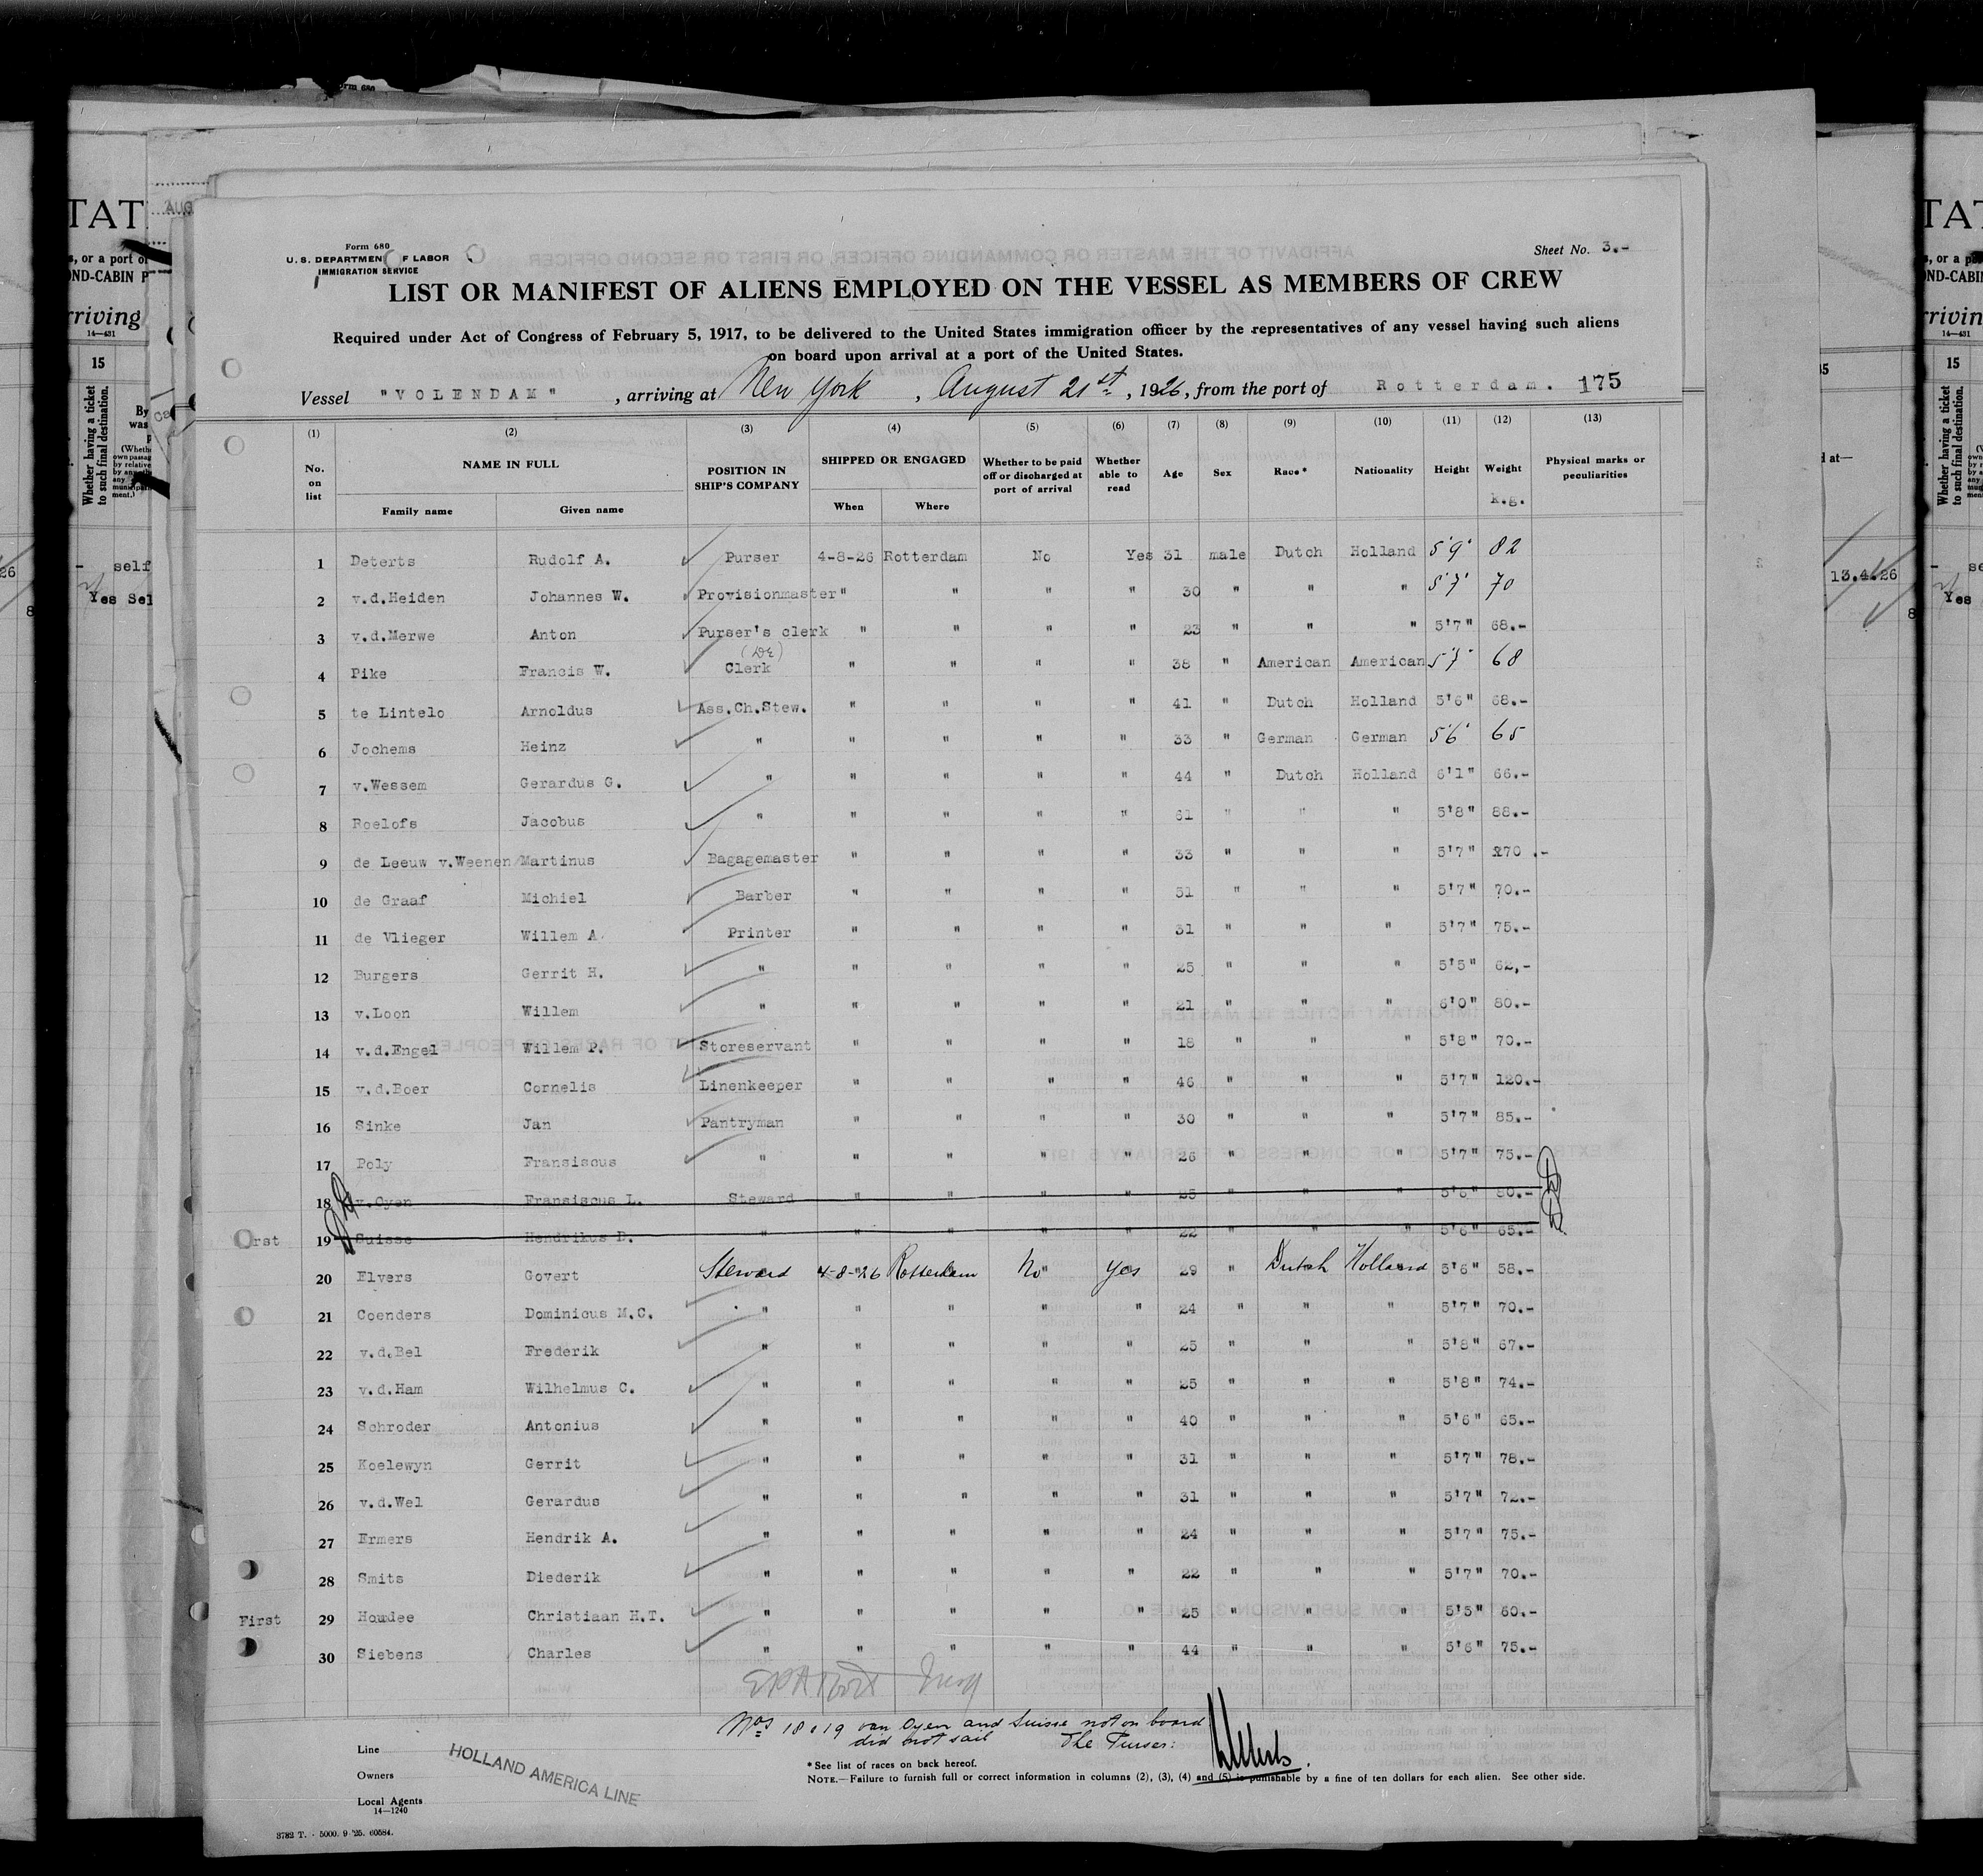 Form 680
U. S. DEPARTMEN F LABOR
IMMIGRATION SERVICE
Sheet No. 3.-
LIST OR MANIFEST OF ALIENS EMPLOYED ON THE VESSEL AS MEMBERS OF CREW
Required under Act of Congress of February 5, 1917, to be delivered to the United States immigration officer by the representatives of any vessel having such aliens
on board upon arrival at a port of the United States.
Vessel "VOLENDAM" , arriving at New York , August 21st , 1926, from the port of Rotterdam. 175
(1) (2) (3) (4) (5) (6) (7) (8) (9) (10) (11) (12) (13)
No. on list NAME IN FULL Family name Given name POSITION IN SHIP'S COMPANY SHIPPED OR ENGAGED When Where Whether to be paid off or discharged at port of arrival Whether able to read Age Sex Race* Nationality Height Weight k.g. Physical marks or peculiarities
1 Deterts Rudolf A. Purser 4-8-26 Rotterdam No Yes 31 male Dutch Holland 5'9" 82
2 v.d.Heiden Johannes W. Provisionmaster " " " " 30 " " " 5'7" 70
3 v.d.Merwe Anton Purser's clerk " " " " 23 " " " 5'7" 68.-
4 Pike Francis W. Clerk " " " " 38 " American American 5'7" 68
5 te Lintelo Arnoldus Ass.Ch.Stew. " " " " 41 " Dutch Holland 5'6" 68.-
6 Jochems Heinz " " " " " 33 " German German 5'6" 65
7 v.Wessem Gerardus G. " " " " " 44 " Dutch Holland 6'1" 66.-
8 Roelofs Jacobus " " " " " 61 " " " 5'8" 88.-
9 de Leeuw v.Weenen Martinus Bagagemaster " " " " 33 " " " 5'7" 270 .-
10 de Graaf Michiel Barber " " " " 51 " " " 5'7" 70.-
11 de Vlieger Willem A. Printer " " " " 31 " " " 5'7" 75.-
12 Burgers Gerrit H. " " " " " 25 " " " 5'5" 62,-
13 v.Loon Willem " " " " " 21 " " " 6'0" 80.-
14 v.d.Engel Willem P. Storeservant " " " " 18 " " " 5'8" 70.-
15 v.d.Boer Cornelis Linenkeeper " " " " 46 " " " 5'7" 120.-
16 Sinke Jan Pantryman " " " " 30 " " " 5'7" 85.-
17 Poly Fransiscus " " " " " 26 " " " 5'7" 75.-
18 v.Oyen Fransiscus L. Steward " " " " 25 " " " 5'6" 80.-
rst 19 Suisse Hendrikus B. " " " " " 22 " " " 5'6" 65.-
20 Elvers Govert Steward 4-8-26 Rotterdam No Yes 29 " Dutch Holland 5'6" 58.-
21 Coenders Dominicus M.C. " " " " " 24 " " " 5'7" 70.-
22 v.d.Bel Frederik " " " " " 25 " " " 5'8" 67.-
23 v.d.Ham Wilhelmus C. " " " " " 25 " " " 5'8" 74.-
24 Schroder Antonius " " " " " 40 " " " 5'6" 65.-
25 Koelewyn Gerrit " " " " " 31 " " " 5'7" 78.-
26 v.d.Wel Gerardus " " " " " 31 " " " 5'7" 72.-
27 Ermers Hendrik A. " " " " " 24 " " " 5'7" 75.-
28 Smits Diederik " " " " " 22 " " " 5'7" 70.-
First 29 Houdee Christiaan H.T. " " " " " 25 " " " 5'5" 60.-
30 Siebens Charles " " " " " 44 " " " 5'6" 75.-
Nos 18 & 19 van Oyen and Suisse not on board
did not sail The Purser:
Line
HOLLAND AMERICA LINE
Owners
Local Agents
14—1240
* See list of races on back hereof.
NOTE.—Failure to furnish full or correct information in columns (2), (3), (4) and (5) is punishable by a fine of ten dollars for each alien. See other side.
3782 T. - 5000. 9 '25. 60584.